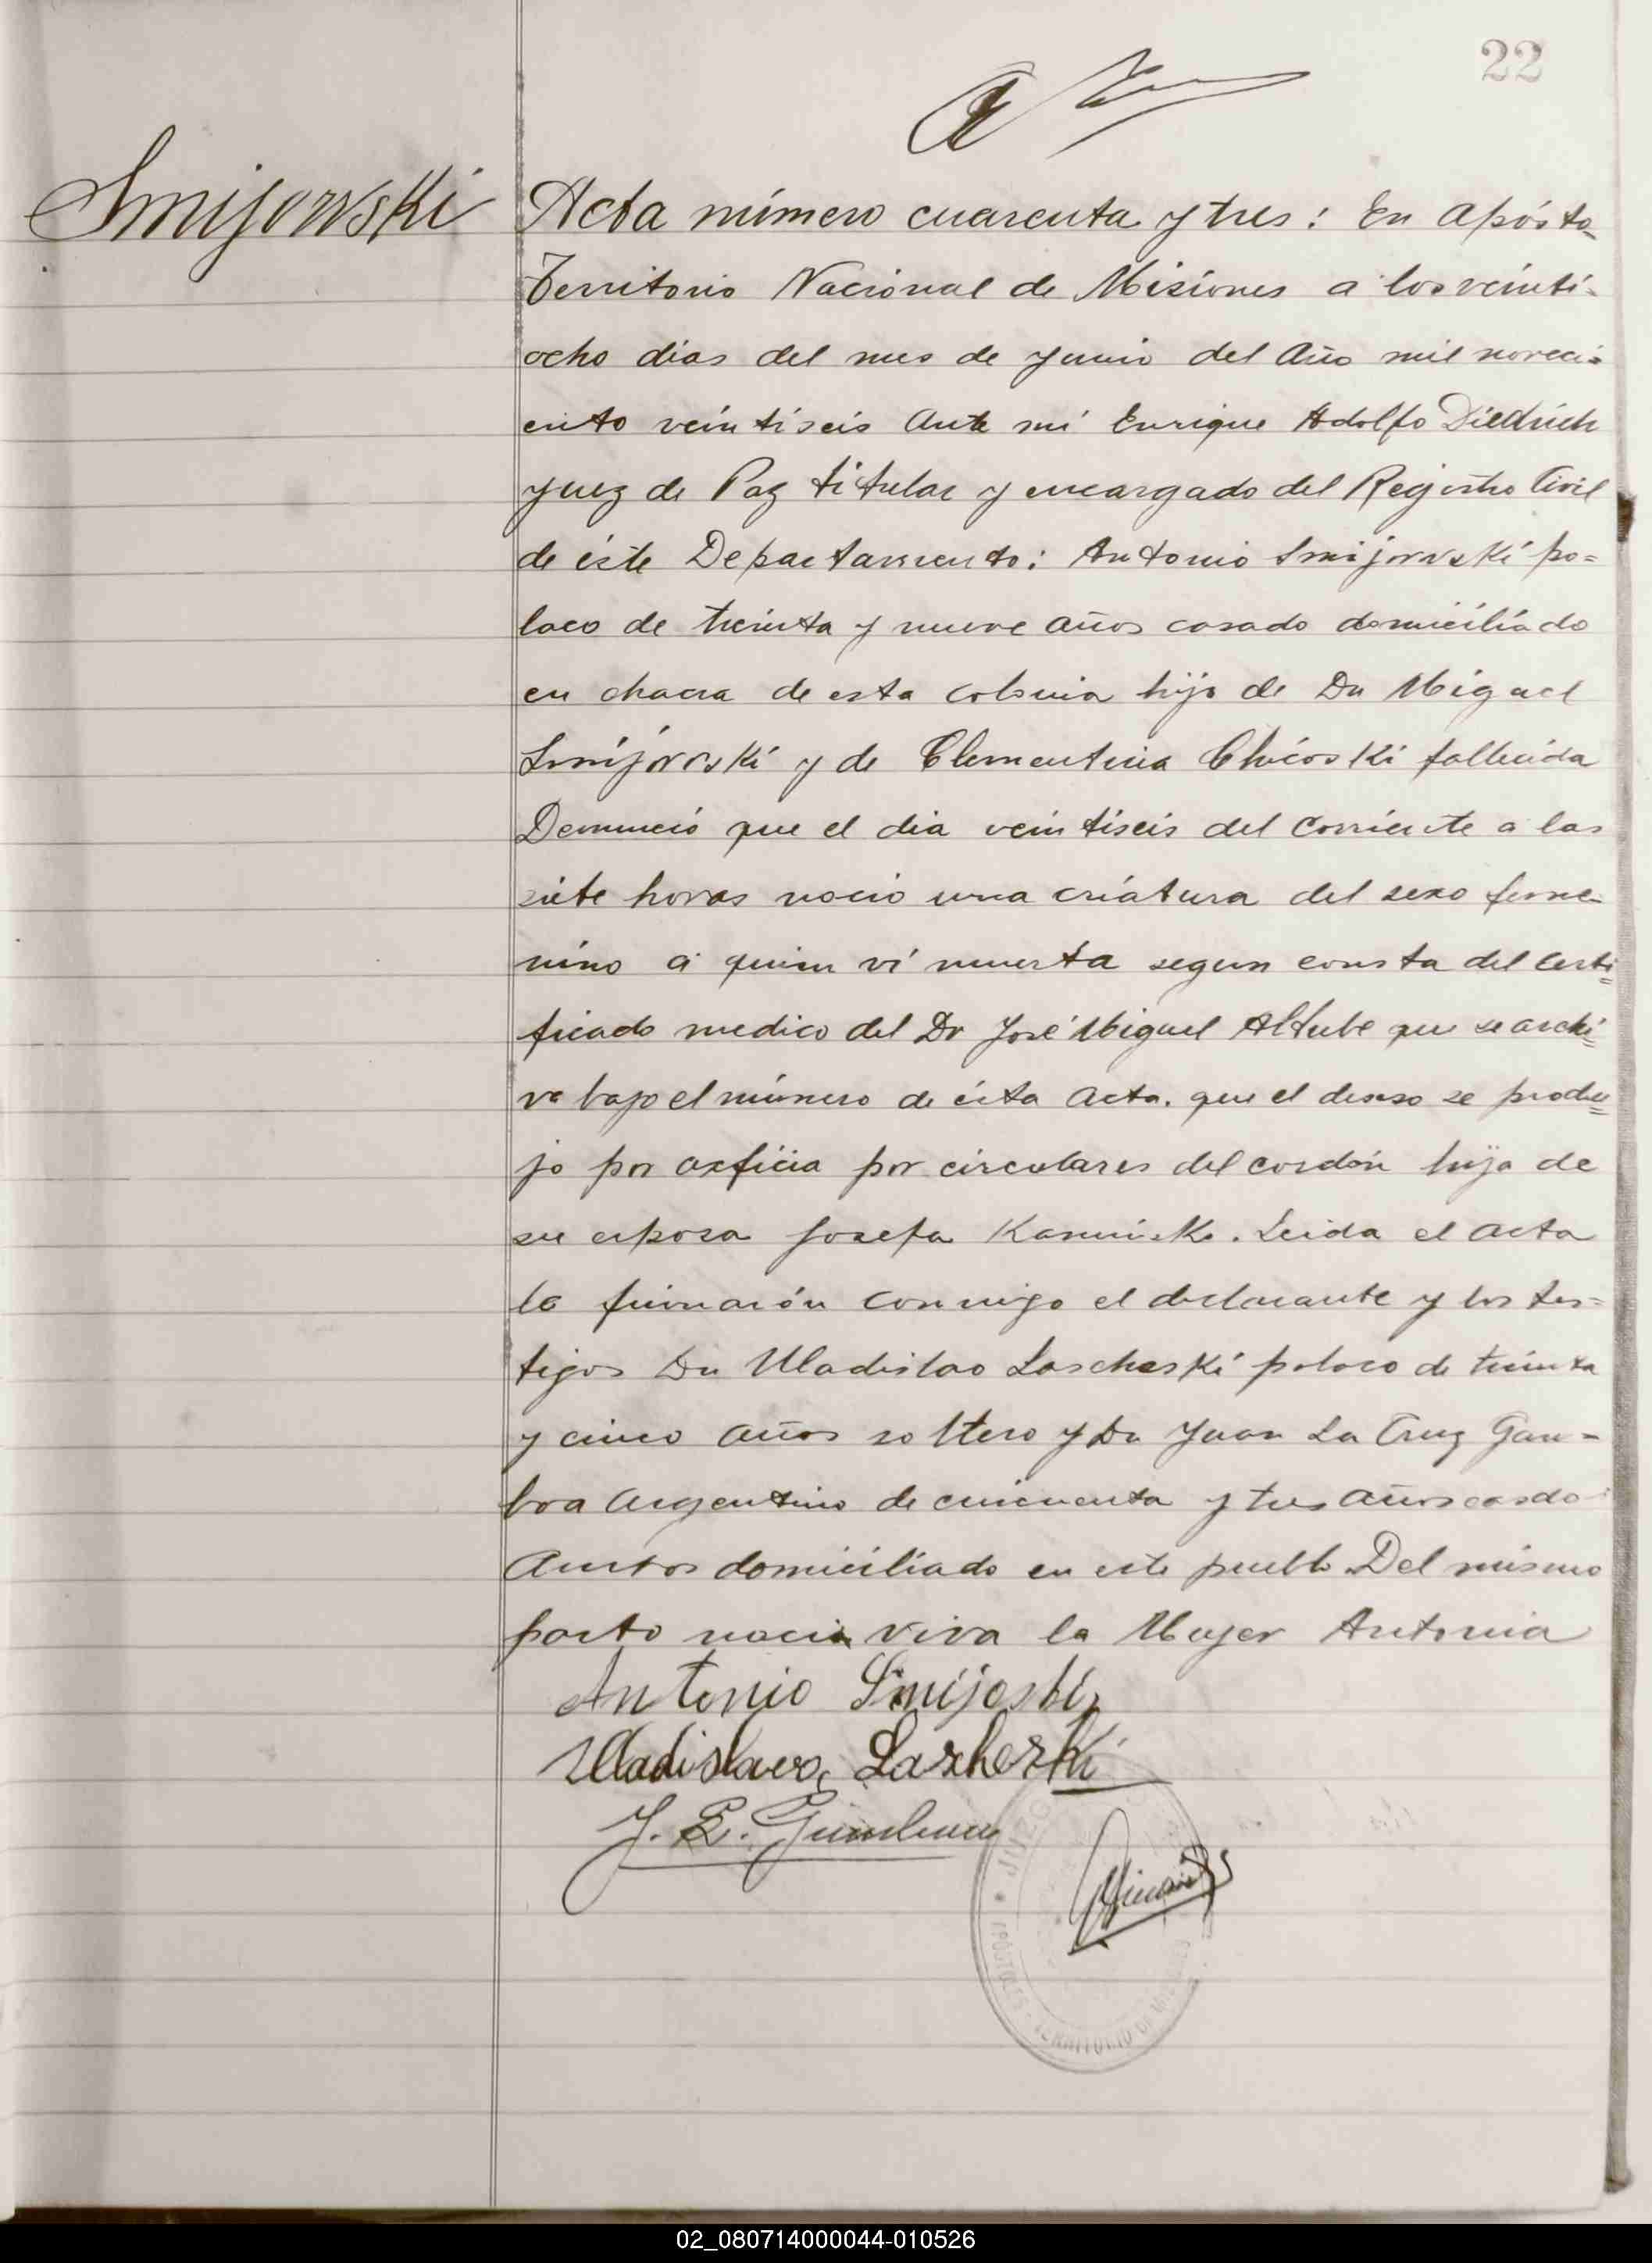 22
Smijowski
Acta número cuarenta y tres: En Apósto-
Territorio Nacional de Misiones a los veinti-
ocho dias del mes de Junio del Año mil noveci-
ento veintiseis Ante mí Enrique Adolfo Diedrich
Juez de Paz titular y encargado del Registro Civil
de éste Departamento: Antonio Smijowski po=
laco de treinta y nueve años casado domiciliado
en chacra de esta colonia hijo de Dn Miguel
Smijowski y de Clementina Chicoski fallecida
Denunció que el dia veintiseis del corriente a las
siete horas nació una criatura del sexo feme-
nino a quien ví muerta segun consta del certi=
ficado medico del Dr José Miguel Altube que se archi=
va bajo el número de ésta Acta. que el deseso se produ=
jo por axficia por circulares del cordón hija de
su esposa Josefa Kaminsko. Leida el acta
la firmarón conmigo el declarante y los tes=
tigos Dn Uladislao Lascheski polaco de treinta
y cinco años soltero y Dn Juan La Cruz Gam=
boa Argentino de cincuenta y tres años casado
Ambos domiciliado en este pueblo Del mismo
parto nació viva la Mujer Antonia
Antonio Smijoski
Uladislavo Lazheski
J. L.
JUZG
APÓSTOLES - TERRITORIO DE MISIONES
02_080714000044-010526